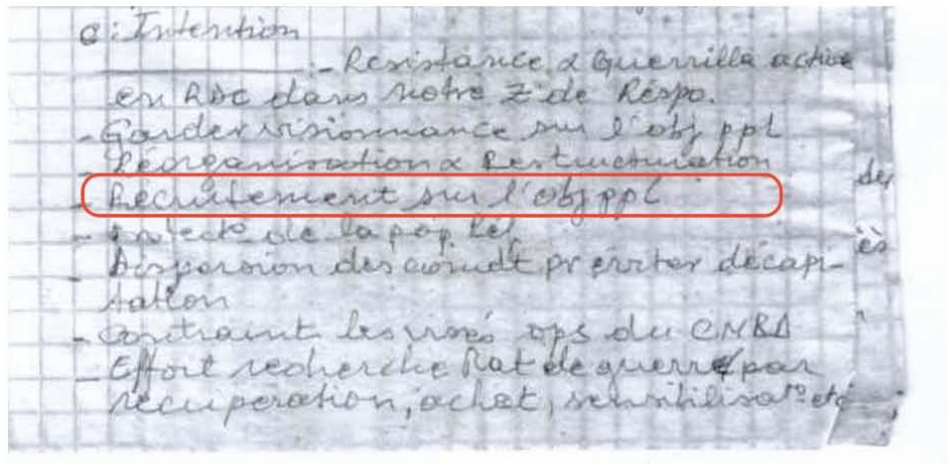 c: Intention
- Résistance & Guerrilla active
en RDC dans notre Z de Respo.
- Garder visionnance sur l'obj ppl
- Réorganisation & Restructuration
- Recrutement sur l'obj ppl
- de la pop
- Dispersion des comdt pr éviter décapi-
tation
- Contraint les ops du
- Effort recherche Mat de guerre par
récupération, achat, sensibilisat° etc